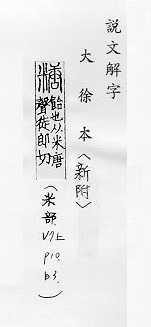 說文解字
大徐本〈新附〉
糖飴也从米唐聲徒郎切
(米部
V7上
P10.
b3.)